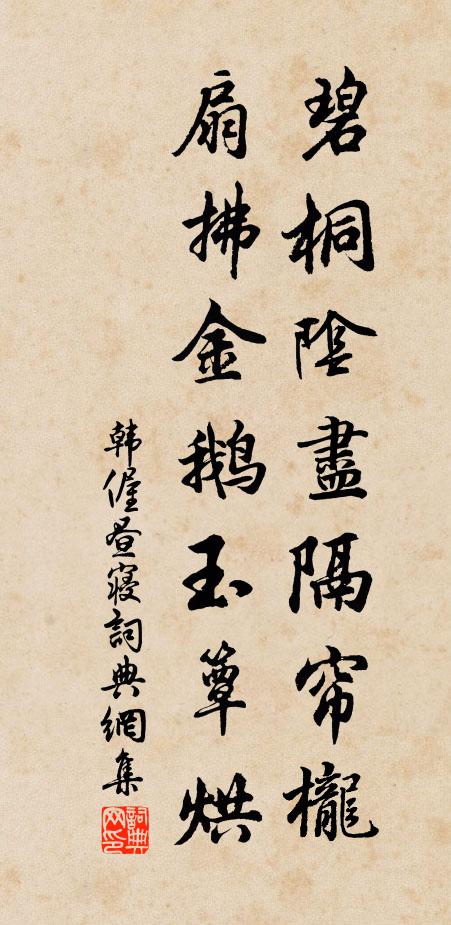 碧桐陰盡隔帘櫳
扇拂金鹅玉簟烘
韩偓昼寝詞典網集
詞典网印